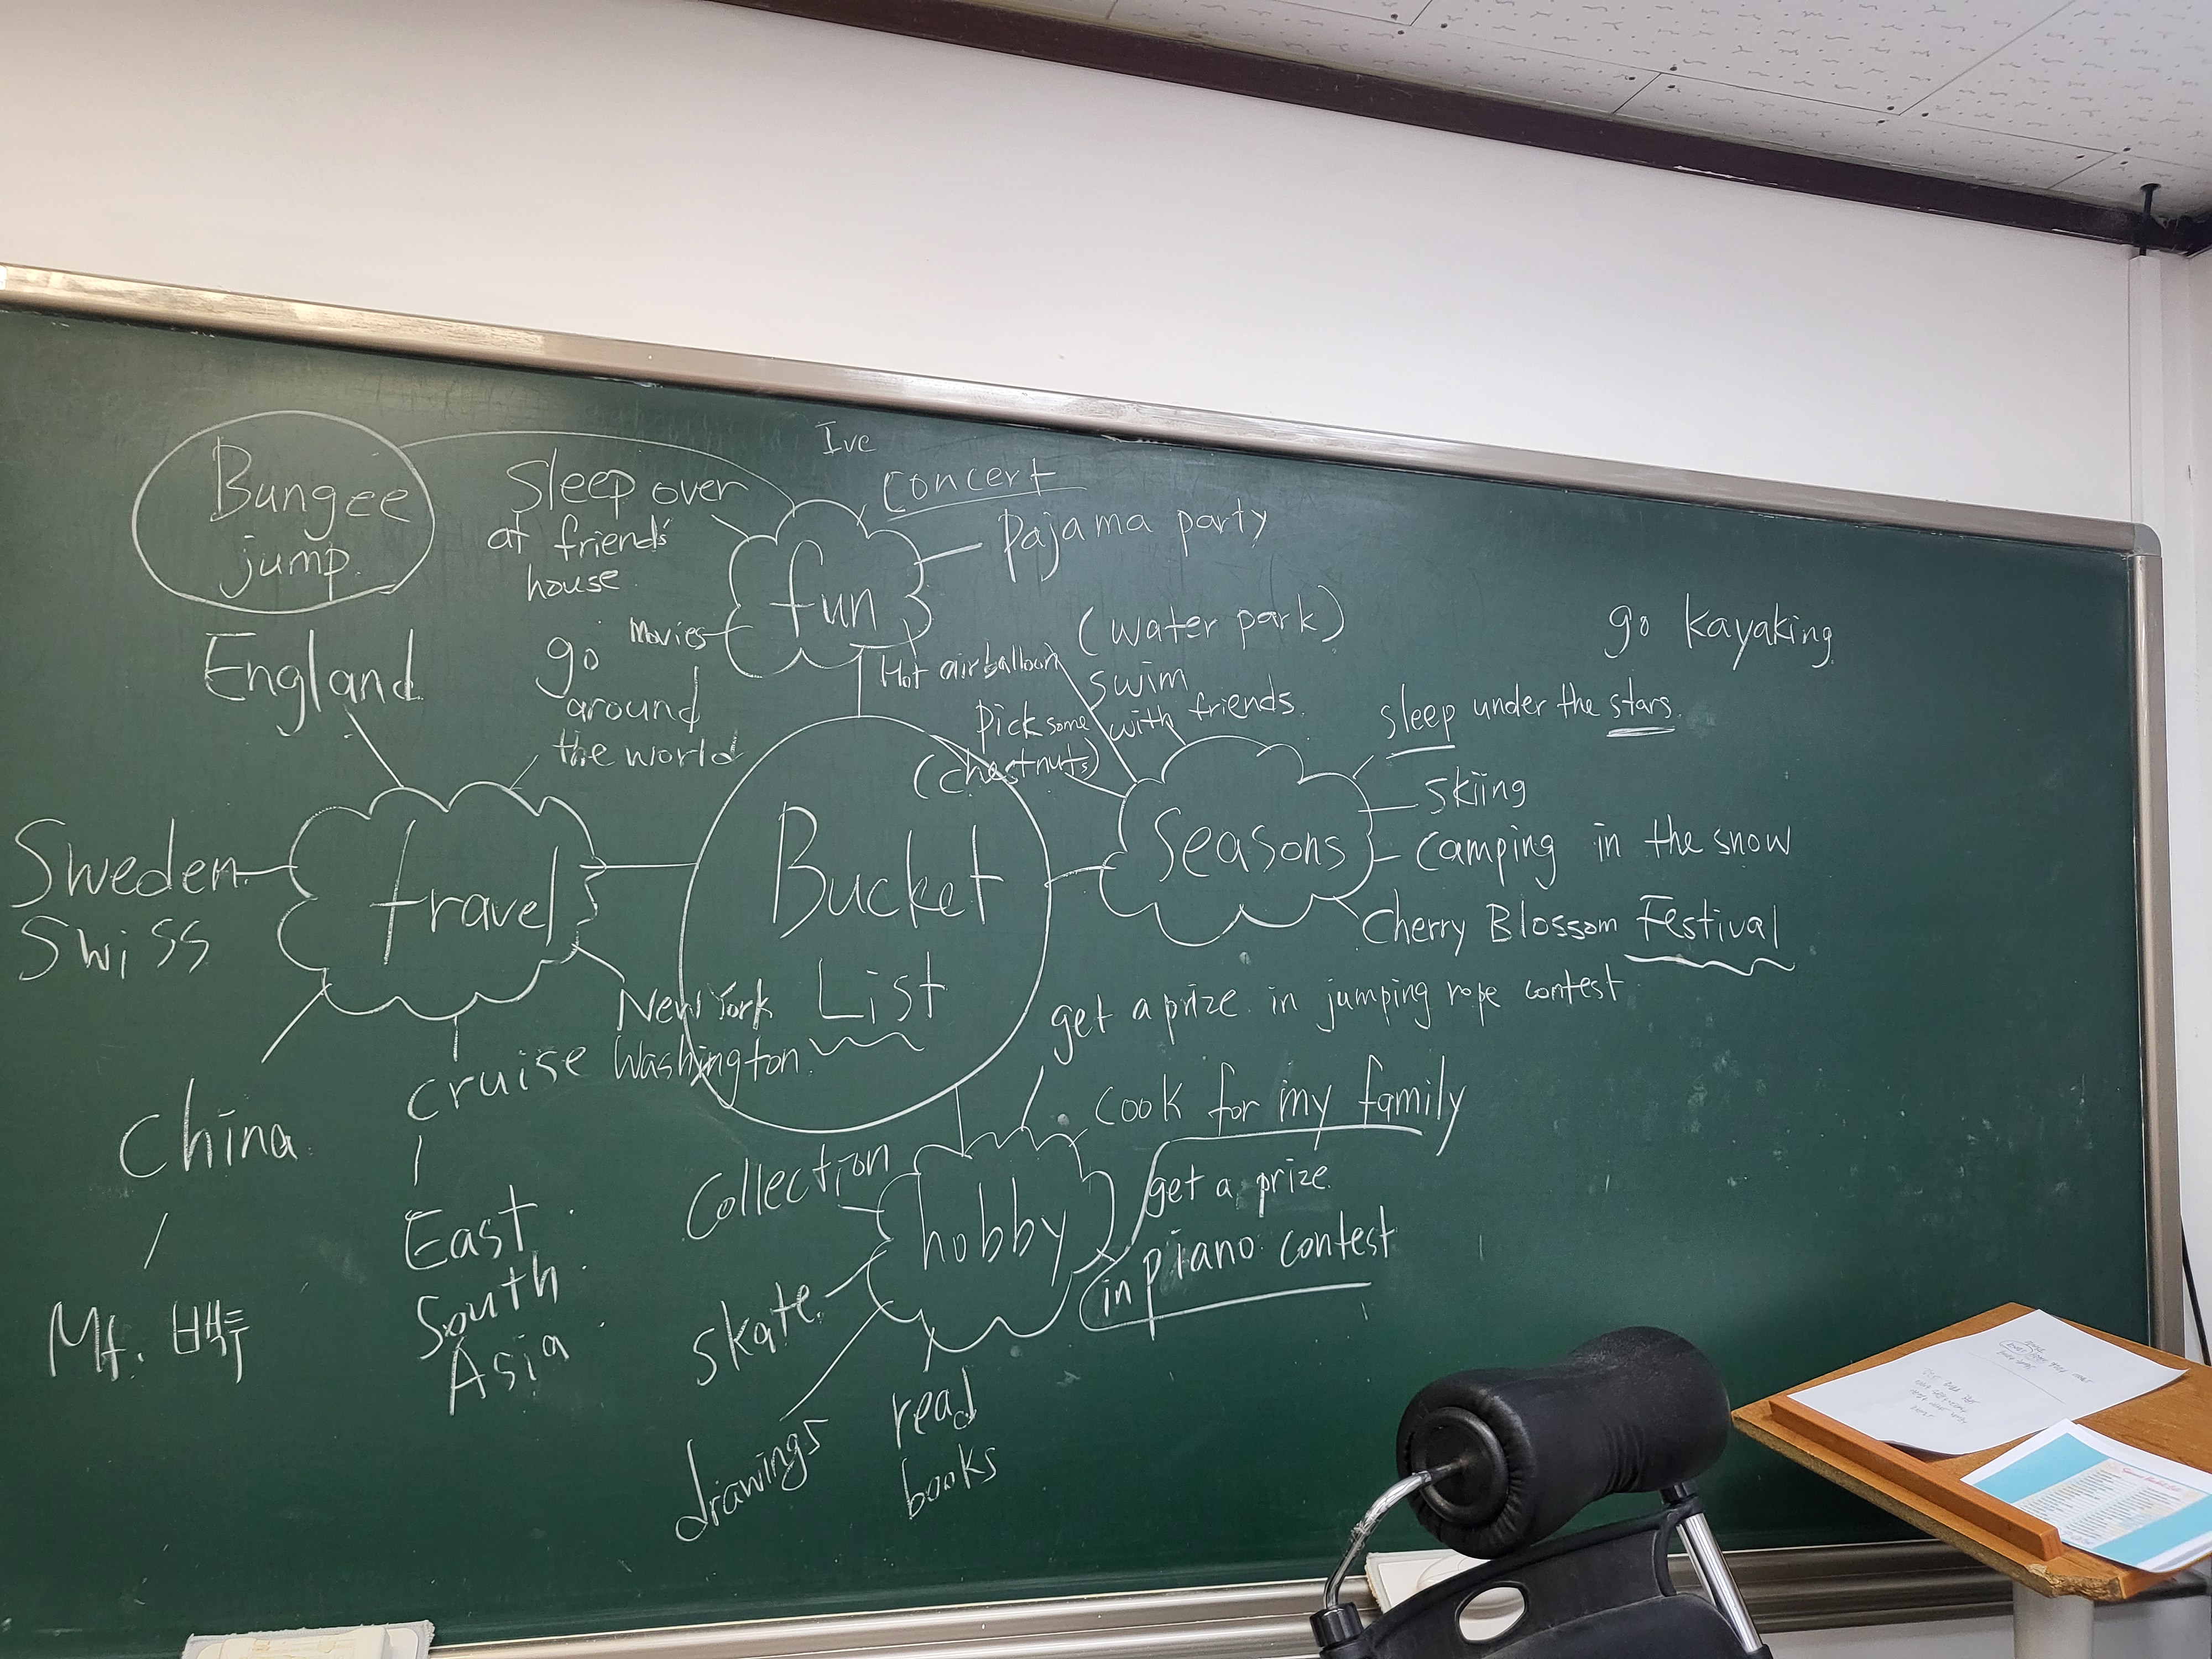 Bungee
jump.
Sleep over
at friend's
house.
Ive
Concert
pajama party
fun
Movies
Hot air balloon
(water park)
swim
with friends.
pick some
(chestnuts)
go kayaking
sleep under the stars.
Seasons
skiing
camping in the snow
Cherry Blossom Festival
England
go
around
the world
Sweden
Swiss
travel
New York
Washington.
China
Mt. 백두
cruise
East
South
Asia
Bucket
List
get a prize in jumping rope contest
cook for my family
get a prize
in piano contest
hobby
Collection
skate
drawings
read
books